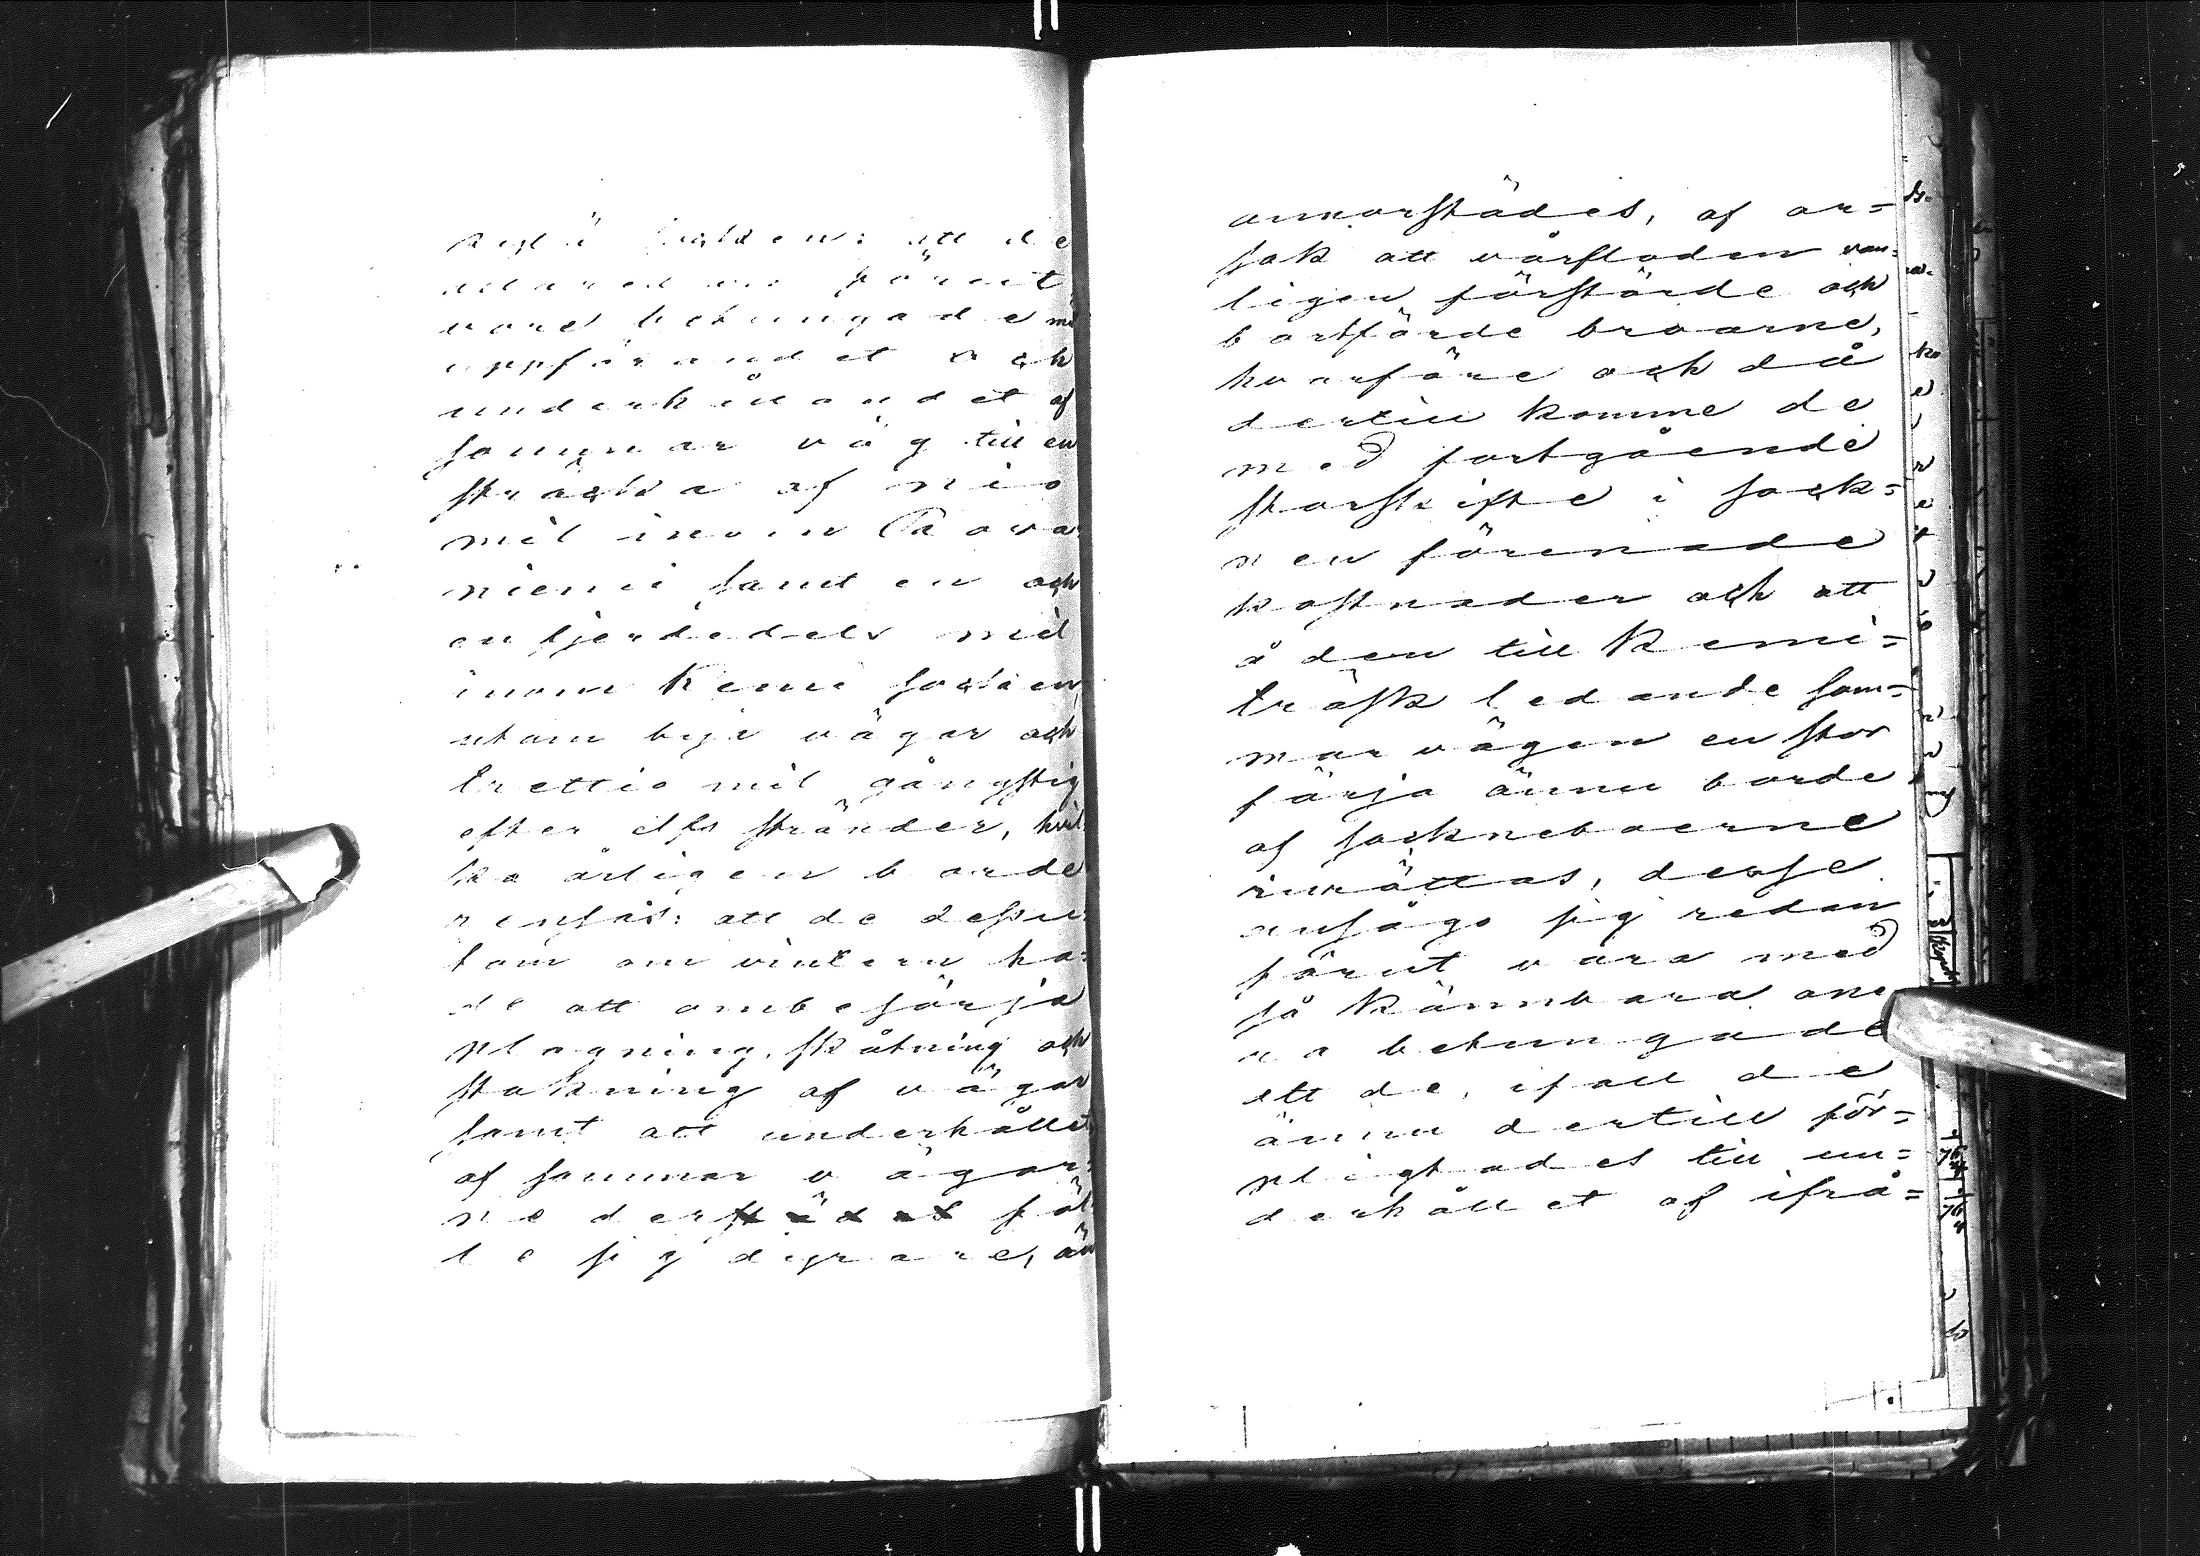 att de
förut
vore betungade me
uppförandet och
underhållandet af
sommar väg till en
sträcka af nio
mil inom Rova
niemi samt en och
en fjerdedels mil
inom Kemi socken,
utom byi vägar och
trettio mil gångstig
efter elfs stränder, hvil
ka årligen borde
rensas: att de dessu
tom om vintern ha=
de att ombesörja
plogning, skåtning och
stakning af vägar
samt att underhållet
af sommar vägar=
ne derstädes föl
le sig dyrare, än
annorstädes, af or=
sak att vårfloden van=
ligen förstörde och
bortförde broarne,
hvarföre och då
dertill komme de
med fortgående
storskifte i sock=
nen förenade
kostnader och att
å den till Kemi=
träsk ledande som=
mar vägen en stor
färja ännu borde
af sockneboerne
inrättas, desse
ansågo sig redan
förut vara med
så kännbara one
ra betungade
att de, ifall de
ännu dertill för=
pligtades till un=
derhållet af ifrå=